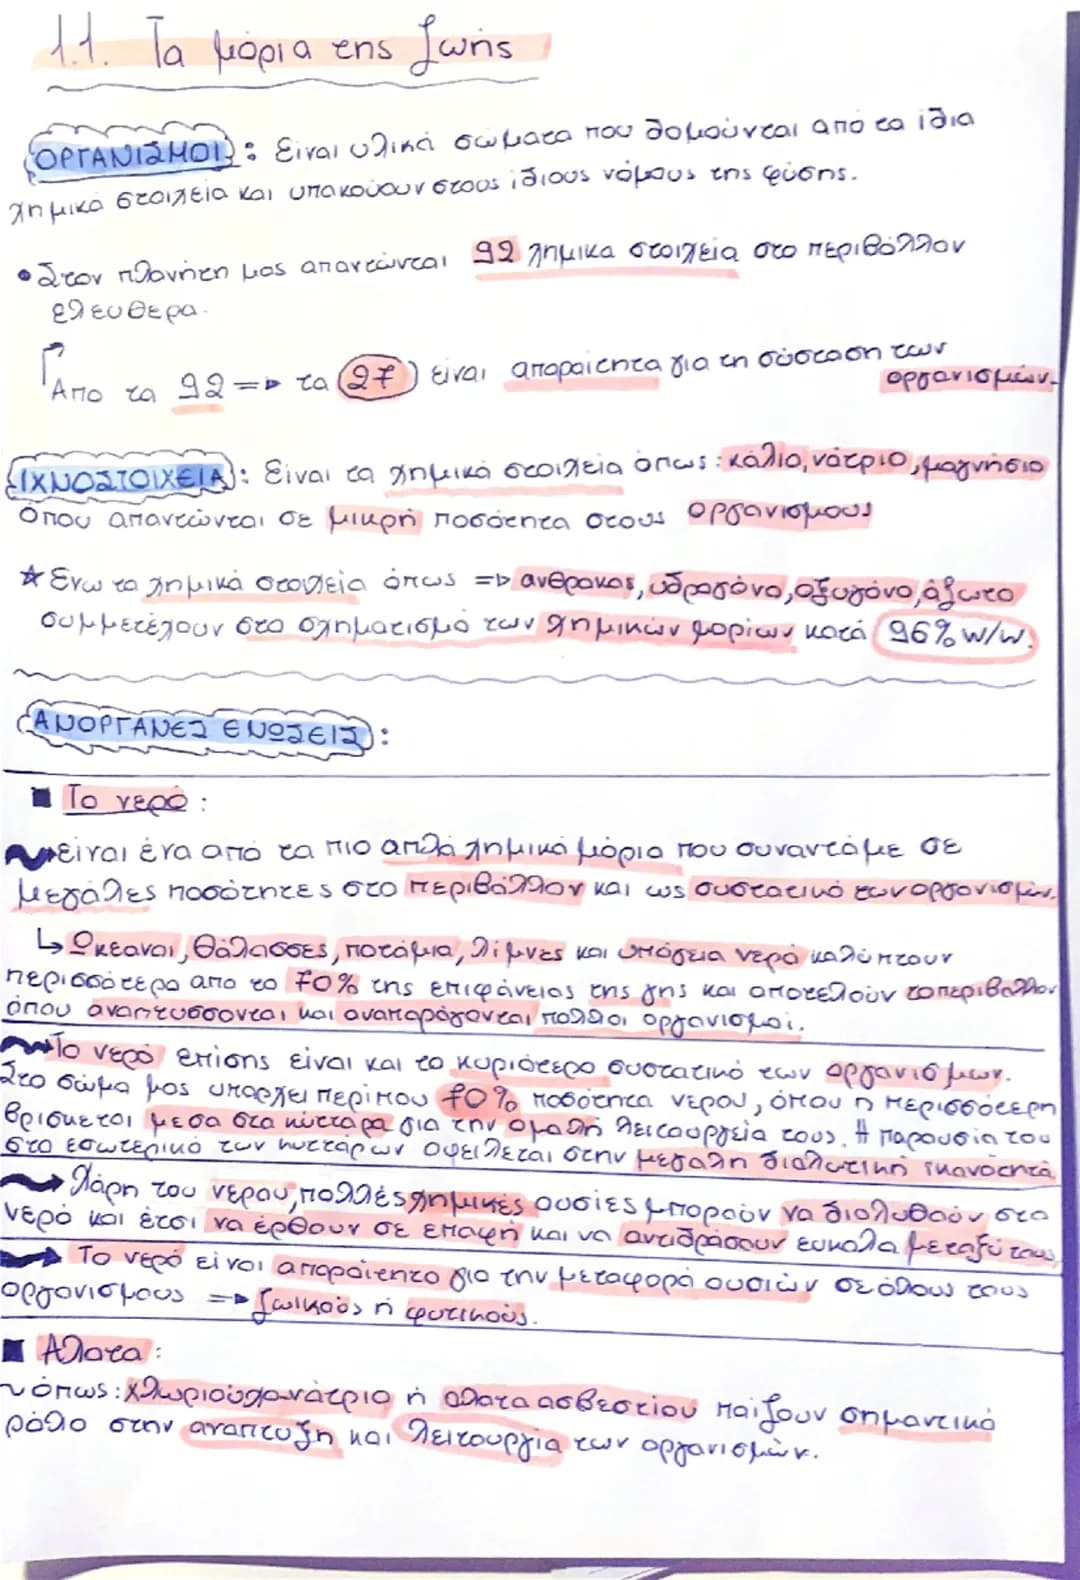 1.1. Τα μόρια της ζωής
ΟΡΓΑΝΙΣΜΟΙ: Είναι υλικά σώματα που δομούνται από τα ίδια
χημικά στοιχεία και υπακούουν στους ίδιους νόμους της φύσης.
• Στον πλανήτη μας απαντώνται 92 χημικα στοιχεία στο περιβάλλον
ελευθερα.
Απο τα 92 => τα 27 είναι απαραίτητα για τη σύσταση των
οργανισμών.
ΙΧΝΟΣΤΟΙΧΕΙΑ: Είναι τα χημικά στοιχεία όπως: κάλιο, νάτριο, μαγνήσιο
όπου απαντώνται σε μικρή ποσότητα στους οργανισμους
☆ Ενω τα χημικά στοιχεία όπως => ανθρακας, υδρογόνο, οξυγόνο, άζωτο
συμμετέχουν στο σχηματισμό των χημικών μορίων κατά 96% w/w.
ΑΝΟΡΓΑΝΕΣ ΕΝΩΣΕΙΣ:
■ Το νερό:
είναι ένα από τα πιο απλά χημικά μόρια που συναντάμε σε
μεγάλες ποσότητες στο περιβάλλον και ως συστατικό των οργανισμών.
↳ Ωκεανοι, θάλασσες, ποτάμια, λίμνες και υπόγεια νερά καλύπτουν
περισσότερο απο το 70% της επιφάνειας της γης και αποτελούν το περιβάλλον
όπου αναπτυσσονται και αναπαράγονται πολλοι οργανισμοί.
Το νερό επίσης είναι και το κυριότερο συστατικό των οργανισμων.
Στο σώμα μας υπαρχει περίπου 70% ποσότητα νερου, όπου η περισσότερη
βρισκεται μεσα στα κύτταρα για την ομαλή λειτουργεία τους. Η παρουσία του
στο εσωτερικό των κυττάρων οφείλεται στην μεγαλη διαλυτική ικανότητα
Χάρη του νερου, πολλές χημικές ουσίες μπορούν να διαλυθούν στο
νερό και έτσι να έρθουν σε επαφή και να αντιδράσουν ευκολα μεταξύ τους
Το νερό είναι απαραίτητο για την μεταφορά ουσιών σε όλους τους
οργανισμους => ζωικούς ή φυτικούς.
■ Αλατα:
όπως: χλωριούχο νάτριο ή αλατα ασβεστίου παίζουν σημαντικό
ρόλο στην αναπτυξη και λειτουργία των οργανισμών.